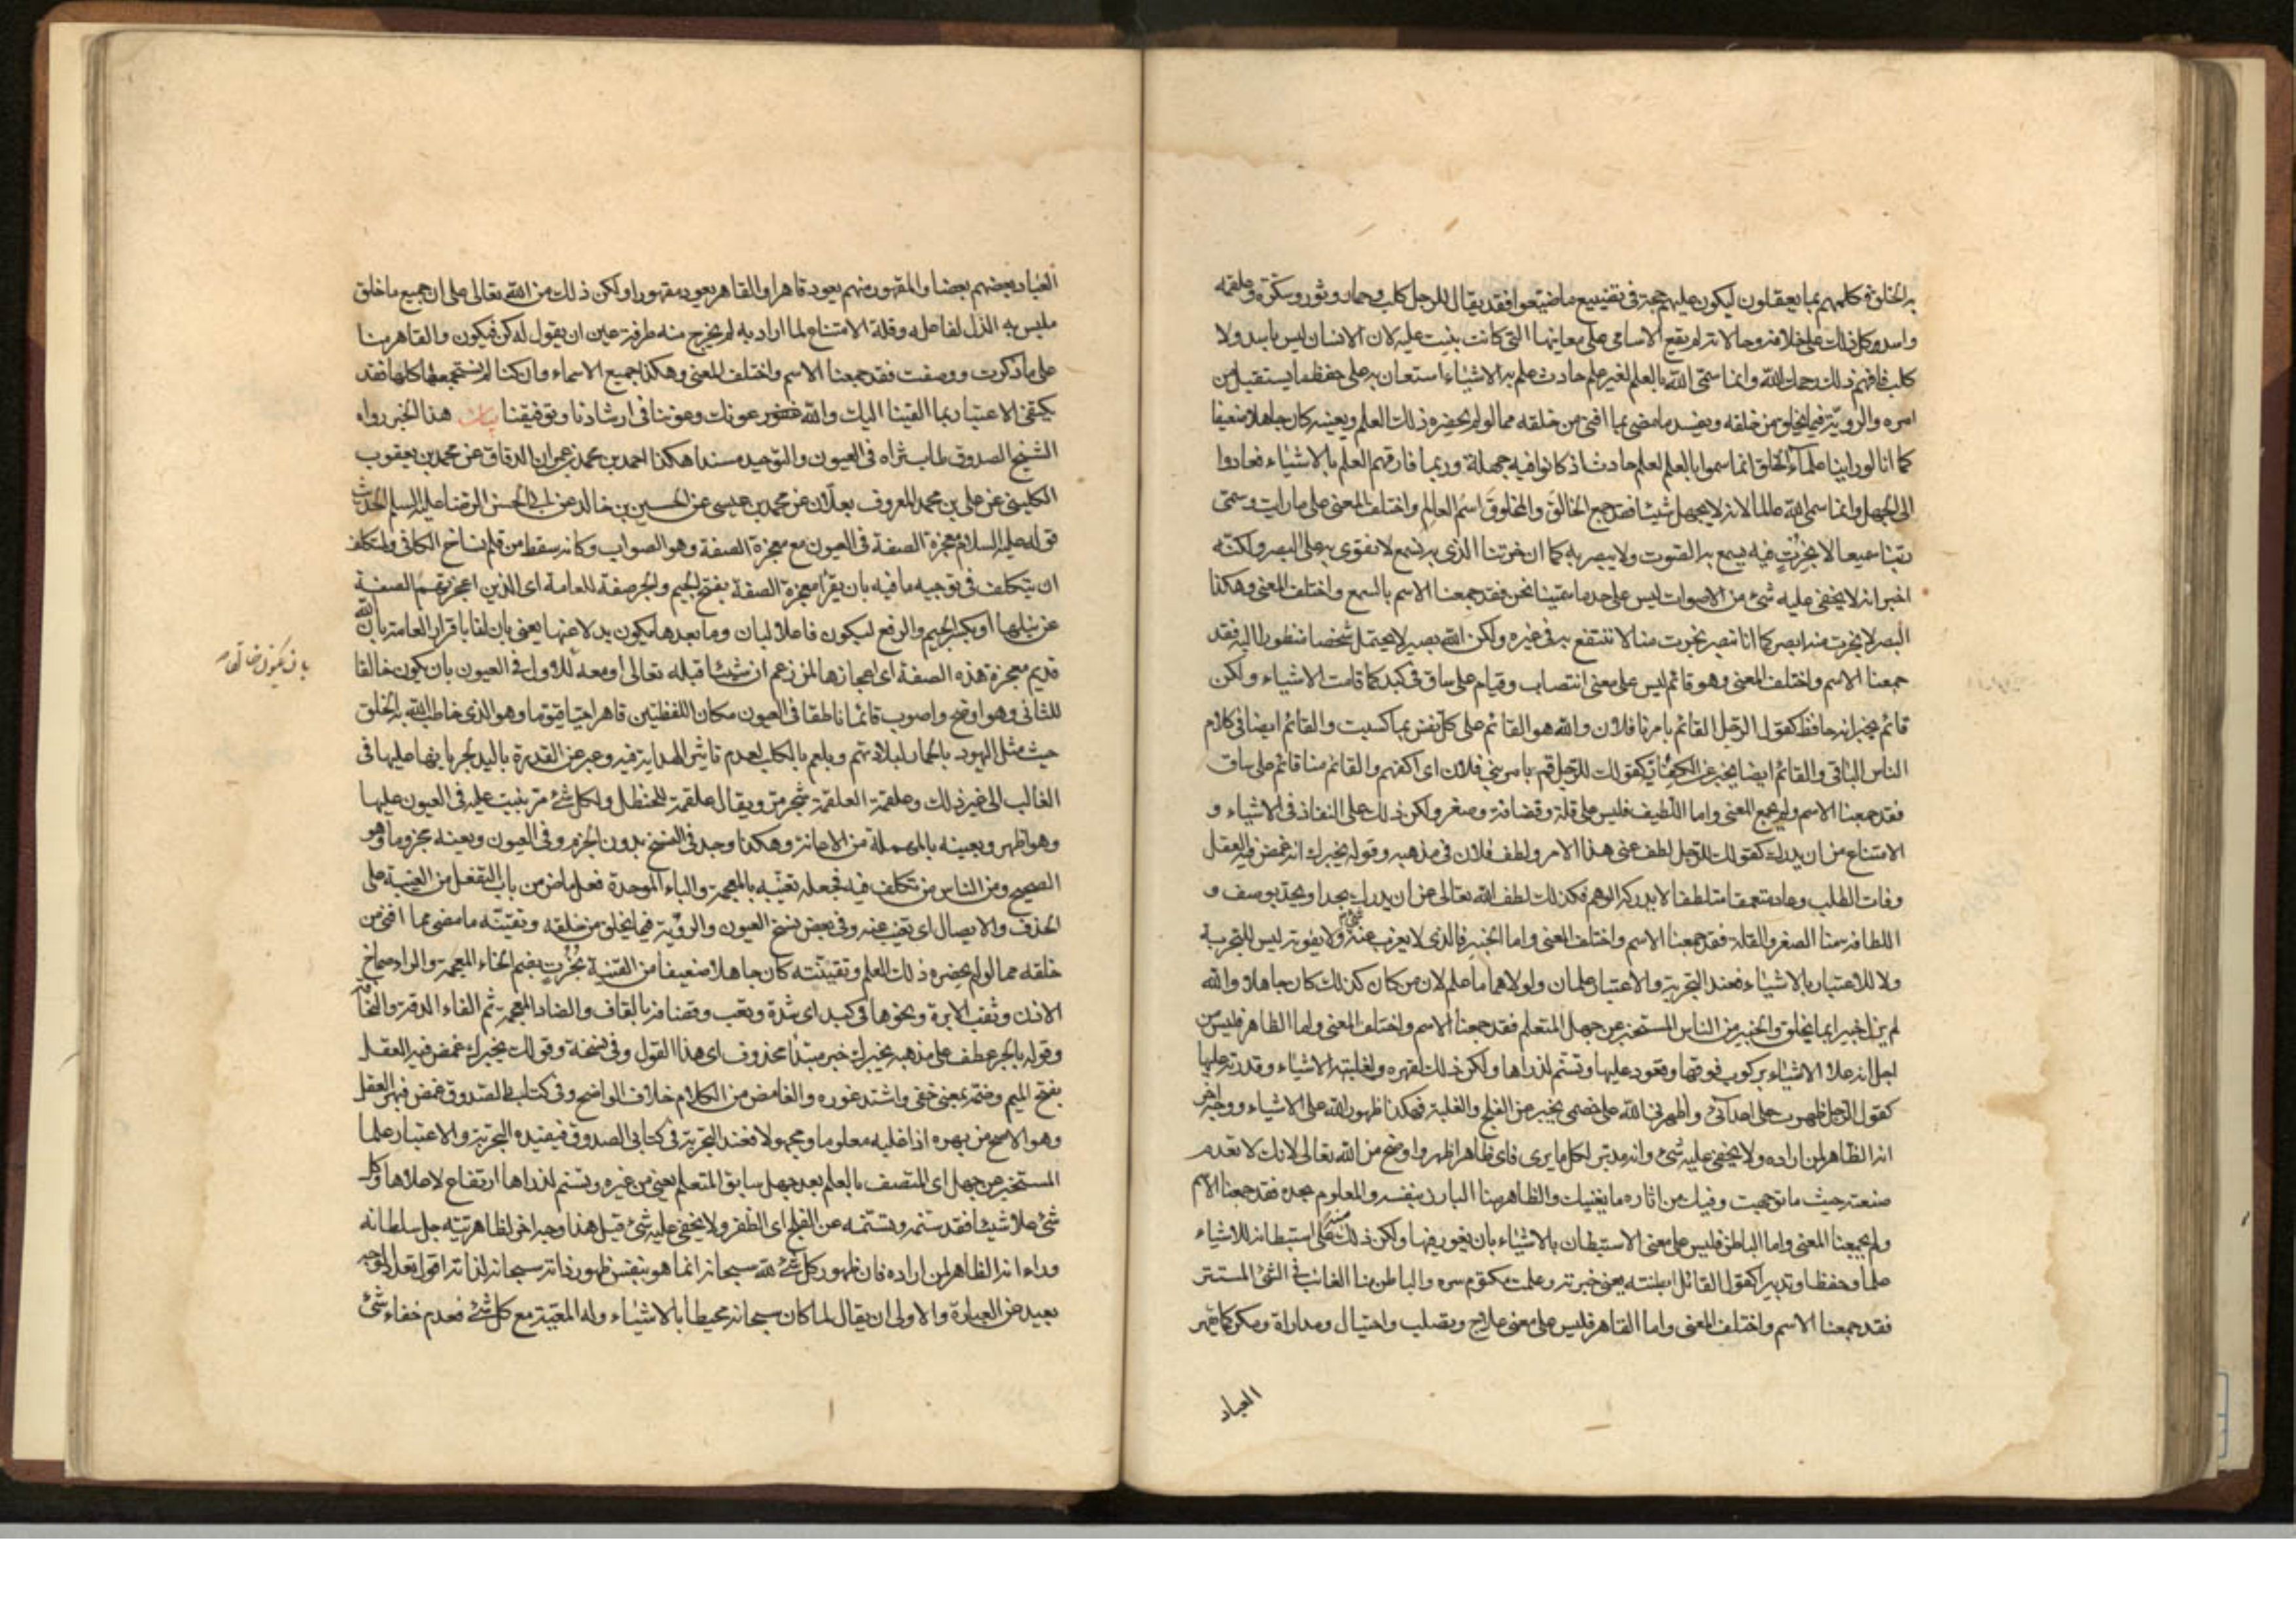 به الخلق فكلمهم بما يعقلون ليكون عليهم حجة فى تضييع ما ضيعوا فقد يقال للرجل كلب وحمار وثور وسكرة وعلقمة
واسد وكل ذلك على خلافه وحالاته لم يقع الاسامى على معانيها التى كانت بنيت عليه لان الانسان ليس باسد ولا
كلب فافهم ذلك رحمك الله وانما سمّى الله بالعلم لغير علم حادث علم به الاشياء استعان به على حفظ ما يستقبل من
امره والرويّة فيما يخلق من خلقه ويفسد ما مضى بما افنى من خلقه مما لو لم يحضره ذلك العلم ويعينه كان جاهلا ضعيفا
كما انا لو راينا علماء الخلق انما سموا بالعلم لعلم حادث اذ كانوا فيه جهلة وربما فارقهم العلم بالاشياء فعادوا
الى الجهل وانما سمى الله عالما لانه لا يجهل شيئا فقد جمع الخالق والمخلوق اسم العالم واختلف المعنى على ما رايت وسمّى
ربّنا سميعا لا بخرت فيه يسمع به الصوت ولا يبصر به كما ان خرتنا الذى به نسمع لا نقوى به على البصر ولكنّه
اخبر انه لا يخفى عليه شئ من الاصوات ليس على حد ما سمّينا نحن فقد جمعنا الاسم بالسمع واختلف المعنى وهكذا
البصر لا بخرت منه ابصر كما انا نبصر بخرت منا لا ننتفع به فى غيره ولكن الله بصير لا يحتمل شخصا منظورا اليه فقد
جمعنا الاسم واختلف المعنى وهو قائم ليس على معنى انتصاب وقيام على ساق فى كبد كما قامت الاشياء ولكن
قائم يخبر انه حافظ كقول الرجل القائم بامرنا فلان والله هو القائم على كل نفس بما كسبت والقائم ايضا فى كلام
الناس الباقى والقائم ايضا يخبر عن الكفاية كقولك للرجل قم بامر بنى فلان اى اكفهم والقائم منا قائم على ساق
فقد جمعنا الاسم ولم يجمع المعنى واما اللطيف فليس على قلة وقضافة وصغر ولكن ذلك على النفاذ فى الاشياء و
الامتناع من ان يدرك كقولك للرجل لطف عنى هذا الامر ولطف فلان فى مذهبه وقوله يخبرك انه غمض فيه العقل
وفات الطلب وعاد متعمقا متلطفا لا يدركه الوهم فكذلك لطف الله تعالى عن ان يدرك بحد او يحدّ بوصف و
اللطافة منا الصغر والقلة فقد جمعنا الاسم واختلف المعنى واما الخبير فالذى لا يعزب عنه شئ ولا يفوته ليس للتجربة
ولا للاعتبار بالاشياء فعند التجربة والاعتبار علمان ولولاهما ما علم لان من كان كذلك كان جاهلا والله
لم يزل خبيرا بما يخلق والخبير من الناس المستخبر عن جهل المتعلم فقد جمعنا الاسم واختلف المعنى واما الظاهر فليس من
اجل انه علا الاشياء بركوب فوقها وقعود عليها وتسنّم لذراها ولكن ذلك لقهره ولغلبته الاشياء وقدرته عليها
كقول الرجل ظهرت على اعدائى واظهرنى الله على خصمى يخبر عن الفلج والغلبة فهكذا ظهور الله على الاشياء ووجه اخر
انه الظاهر لمن اراده ولا يخفى عليه شئ وانه مدبّر لكل ما يرى فاى ظاهر اظهر واوضح من الله تعالى لانك لا تعدم
صنعته حيث ما توجهت وفيك من اثاره ما يغنيك والظاهر منا البارز بنفسه والمعلوم بحده فقد جمعنا الاسم
ولم يجمعنا المعنى واما الباطن فليس على معنى الاستبطان بالاشياء بان يغور فيها ولكن ذلك منه على استبطانه للاشياء
علما وحفظا وتدبيرا كقول القائل ابطنته يعنى خبرته وعلمت مكتوم سره والباطن منا الغائب فى الشئ المستتر
فقد جمعنا الاسم واختلف المعنى واما القاهر فليس على معنى علاج وتصلب واحتيال ومداراة ومكر كما يقهر
العباد
العباد بعضهم بعضا والمقهور منهم يعود قاهرا والقاهر يعود مقهورا ولكن ذلك من الله تعالى على ان جميع ما خلق
ملبس به الذل لفاعله وقلة الامتناع لما اراد به لم يخرج منه طرفة عين ان يقول له كن فيكون والقاهر منا
على ما ذكرت ووصفت فقد جمعنا الاسم واختلف المعنى وهكذا جميع الاسماء وان كنا لم نستجمعها كلها فقد
يكتفى الاعتبار بما القينا اليك والله عونك وعوننا فى ارشادنا وتوفيقنا بيان هذا الخبر رواه
الشيخ الصدوق طاب ثراه فى العيون والتوحيد مسندا هكذا احمد بن محمد بن عمران الدقاق عن محمد بن يعقوب
الكلينى عن على بن محمد المعروف بعلّان عن محمد بن عيسى عن الحسين بن خالد عن ابى الحسن الرضا عليه السلم الحديث
قوله عليه السلام معجزة الصفة فى العيون مع معجزة الصفة وهو الصواب وكانه سقط من قلم نساخ الكافى ولمتكلف
ان يتكلف فى توجيه ما فيه بان يقرأ معجزة الصفة بفتح الجيم والجر صفة للعامة اى الذين اعجزتهم الصفة
عن نيلها او بكسر الجيم والرفع ليكون فاعلا لبان وما بعدها يكون بدلا عنها يعنى بان لنا باقرار العامة بان الله
قديم معجزة هذه الصفة اى اعجازها لمن زعم ان شيئا قبله تعالى او معه للاول فى العيون بان يكون خالقا
للثانى وهو اوضح واصوب قائما ناطقا فى العيون مكان اللفظتين قاهرا حيا قيوما وهو الذى خاطب الله به الخلق
حيث مثل اليهود بالحمار لبلادتهم وبلعم بالكلب لعدم تاثير الهداية فيه وعبر عن القدرة باليد لجريانها عليها فى
الغالب الى غير ذلك وعلقمة العلقمة شجر مرّ ويقال علقمة للحنظل ولكل شئ مرّ بنيت عليه فى العيون عليها
وهو اظهر ويعينه بالمهملة من الاعانة وهكذا وجد فى النسخ بدون الجزم وفى العيون ويعينه مجزوما وهو
الصحيح ومن الناس من تكلف فيه فجعله تغيّبه بالمعجمة والباء الموحدة فعل ماض من باب التفعل من الغيبة على
الحذف والايصال اى تغيب عنه وفى بعض نسخ العيون والرويّة فيما يخلق من خلقه وتقيّنه ما مضى مما افنى من
خلقه مما لو لم يحضره ذلك العلم وتقيّنه كان جاهلا ضعيفا من القنية بخرت بضم الخاء المعجمة والراء صماخ
الاذن وثقب الابرة ونحوها فى كبد اى شدة وتعب وقضافة بالقاف والضاد المعجمة ثم الفاء الدقة والنحافة
وقوله بالجر عطف على مذهبه يخبرك خبر مبتدأ محذوف اى هذا القول وفى نسخة وقولك يخبرك غمض فيه العقل
بفتح الميم وضمه بمعنى خفى واشتد غوره والغامض من الكلام خلاف الواضح وفى كتابى الصدوق غمض فبهر العقل
وهو الاصح من بهره اذا غلبه معلوما ومجهولا فعند التجربة فى كتابى الصدوق فيفيده التجربة والاعتبار علما
المستخبر عن جهل اى المتصف بالعلم بعد جهل سابق المتعلم يعنى من غيره وتسنم لذراها ارتفاع لاعلاها وكل
شئ علا شيئا فقد تسنمه وتسنّمه عن الفلج اى الظفر ولا يخفى عليه شئ قيل هذا وجه اخر لظاهريته جل سلطانه
وراء انه الظاهر لمن اراده فان ظهور كل شئ لله سبحانه انما هو بنفس ظهور ذاته سبحانه لذاته اقول
بعيد عن العبارة والاولى ان يقال لما كان سبحانه محيطا بالاشياء وله المعيّة مع كل شئ فعدم خفاء شئ